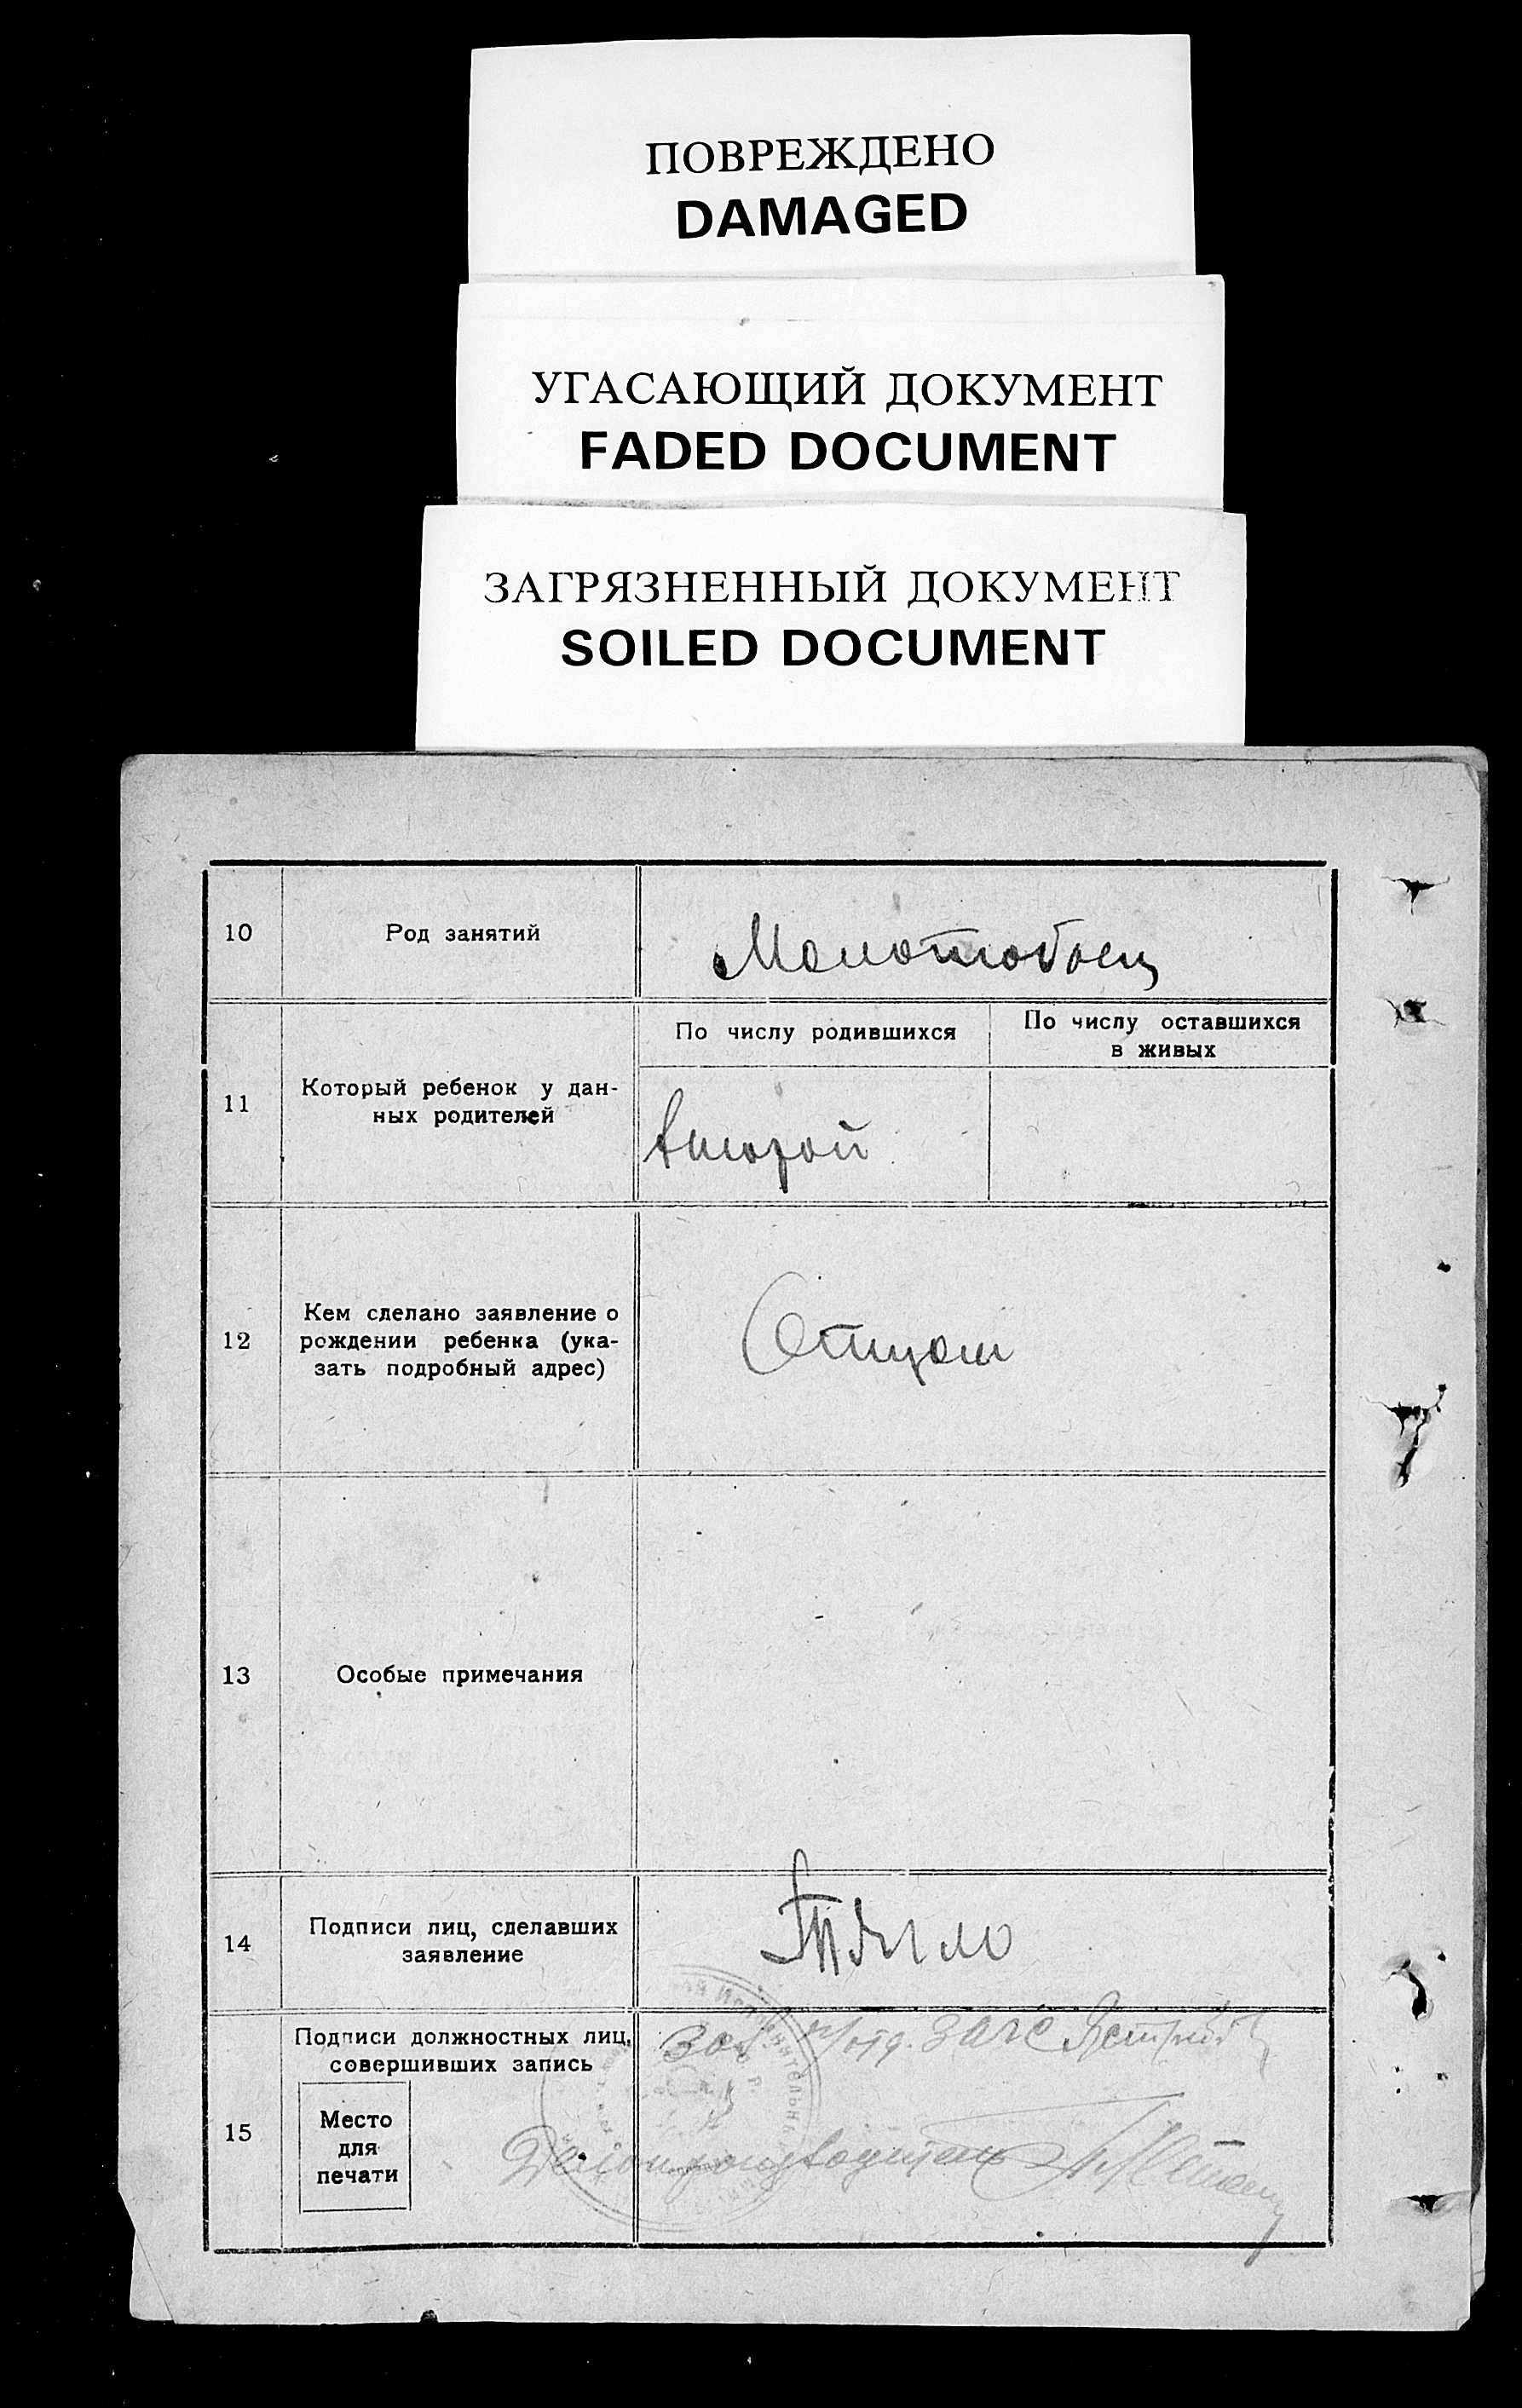 ПОВРЕЖДЕНО
DAMAGED
УГАСАЮЩИЙ ДОКУМЕНТ
FADED DOCUMENT
ЗАГРЯЗНЕННЫЙ ДОКУМЕНТ
SOILED DOCUMENT
10
Род занятий
Молотобоец
11
Который ребенок у дан-
ных родителей
По числу родившихся
По числу оставшихся
в живых
второй
12
Кем сделано заявление о
рождении ребенка (ука-
зать подробный адрес)
Отцом
13
Особые примечания
14
Подписи лиц, сделавших
заявление
15
Подписи должностных лиц,
совершивших запись
Место
для
печати
Зав. п/отд. ЗАГС
Делопроизводитель